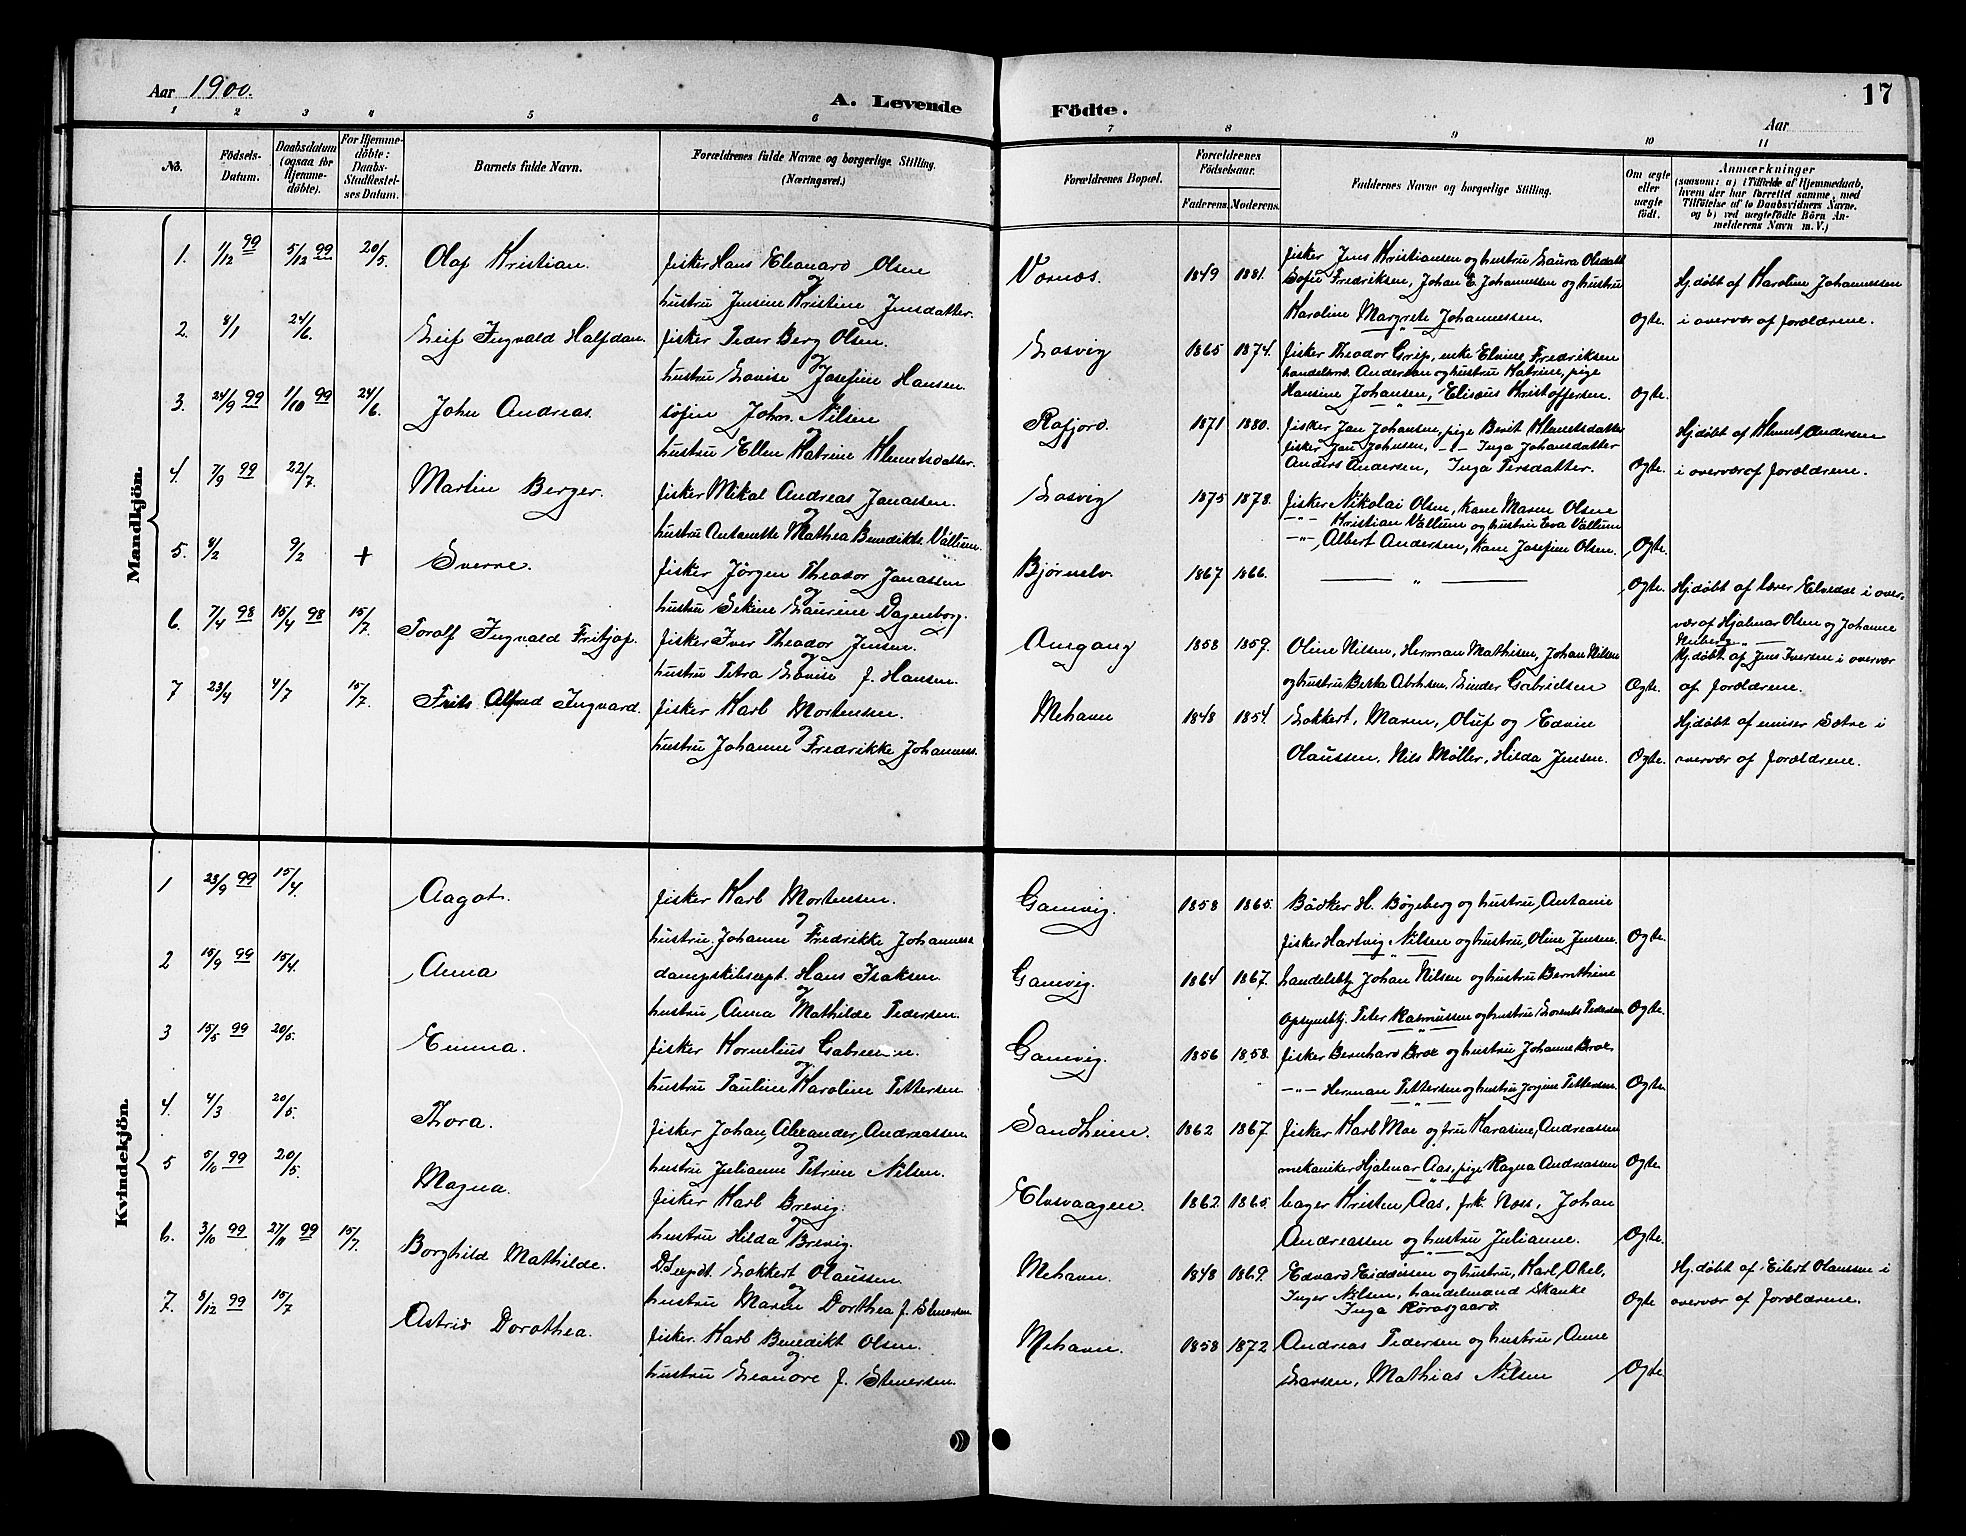 Aar 1900.
A. Levende
Födte.
17
Aar
1 2 3 4 5 6 7 8 9 10 11
No.
Födsels-Datum.
Daabsdatum (ogsaa for Hjemmedöbte).
For Hjemmedöbte: Daabs-Stadfæstelses Datum.
Barnets fulde Navn.
Forældrenes fulde Navne og borgerlige Stilling. (Næringsvei.)
Forældrenes Bopæl.
Forældrenes Födselsaar.
Faderens. Moderens.
Faddernes Navne og borgerlige Stilling.
Om ægte eller uægte födt.
Anmærkninger
(saasom: a) i Tilfælde af Hjemmedaab, hvem der har forrettet samme, med Tilföielse af to Daabsvidners Navne. og b) ved uægtefödte Börn Anmelderens Navn m. V.)
Mandkjön.
1. 1/12 99 5/12 99 20/5. Olaf Kristian. fisker Hans Eleonard Olsen
og
hustru Jensine Kristine Jensdatter.
Vornæs. 1849 1881. fisker Jens Kristiansen og hustru Laura Olsdatt
Sofie Fredriksen, Johan E. Johannessen og hustru
Karoline Margrete Johannessen. Ogte.
Hj.døbt af Karoline Johannessen
i overvær af forældrene.
2. 8/1 24/6 Leif Ingvald Halfdan. fisker Peder Berg Olsen.
og
hustru Lovise Josefine Hansen.
Losvig 1865 1874. fisker Theodor Grip, enke Elvine Fredriksen
handelsm. Andersen og hustru Katrine, pige
Hansine Johansen, Elisæus Kristoffersen. Ogte.
3. 24/9 99 1/10 99 24/6. John Andreas. søfin John Nilsen
og
hustru Ellen Katrine Klemetsdatter.
Rafjord. 1871 1880. fisker Jan Johansen, pige Berit Klemetsdatter
fisker Jan Johnsen, -"- Inga Johansdatter
Anders Andersen, Inga Persdatter. Ogte.
Hj.døbt af Klemet Andersen
i overvær af forældrene.
4. 7/9 99 22/7. Martin Berger. fisker Mikal Andreas Janassen.
og
hustru Antonette Mathea Benedikte Vallum.
Losvig 1875 1878. fisker Nikolai Olsen, kone Maren Olsene
-"- Kristian Vallum og hustru Eva Vallum
-"- Albert Andersen, kone Josefine Olsen. Ogte.
5. 8/2 9/2 + Sverre. fisker Jörgen Theodor Janassen
og
hustru Sekine Laurine Dagenborg.
Bjørnelv. 1867 1866. — " — Ogte.
Hj.døbt af lærer Elvedal i over-
vær af Hjalmar Olsen og Johanne
6. 7/4 98 15/4 98 15/7. Toralf Ingvald Fritjof. fisker Iver Theodor Jensen.
og
hustru Petra Lovise f. Hansen.
Omgang 1858 1859. Oline Nilsen, Herman Mathisen, Johan Nilsen
og hustru Berta Abrhsen, Linder Gabrielsen Ogte.
Hj.døbt af Jens Iversen i overvær
af forældrene.
7 23/4 4/7 15/7. Frits Alfred Ingvard. fisker Karl Mortensen.
og
hustru Johanne Fredrikke Johanness.
Mehavn 1848 1854. Lokkert, Maren, Oluf og Edvin
Olaussen, Nils Møller, Hilda Jensen. Ogte.
Hj.døbt af emisær Sætre i
overvær af forældrene.
Kvindekjön.
1 23/9 99 15/4. Aagot. fisker Karl Mortensen.
og
hustru Johanne Fredrikke Johanness.
Gamvig. 1858 1865. Bødker H. Bøgeberg og hustru, Antonie
fisker Hartvig Nilsen og hustru, Oline Jensen. Ogte.
2 15/9 99 15/4. Anna dampskibsexpt. Hans Isaksen.
og
hustru Anna Mathilde Pedersen.
Gamvig. 1864 1867. handelsbtj. Johan Nilsen og hustru Bernthine
Opsynsbtj. Peter Rasmussen og hustru Lorents Pedersen Ogte.
3 15/5 99 20/5. Emma. fisker Kornelius Gabrielsen.
og
hustru Pauline Karoline Pettersen
Gamvig. 1856 1858. fisker Bernhard Broe og hustru Johanne Broe.
-"- Herman Pettersen og hustru Jorgine Pettersen. Ogte.
4. 4/3 20/5. Thora. fisker Johan Alexander Andreassen
og
hustru Julianne Petrine Nilsen.
Sandheim. 1862 1867. fisker Karl Moe og fru Karasine, Andreassen
mekaniker Hjalmar Aas, pige Ragna Andreassen Ogte.
5 5/10 99 20/5. Magna. fisker Karl Brevig.
og
hustru Hilda Brevig.
Elvsvaagen. 1862 1865. bager Kristen Aas, frk. Næss, Johan
Andreassen og hustru Julianne. Ogte.
6. 3/10 99 27/11 99 15/7. Borghild Mathilde. D.Sexpdt. Lokkert Olaussen.
og
hustru Maren Dorthea f. Stenersen
Mehavn. 1848 1869. Edvard Eiddissen og hustru, Karl, Okel,
Inger Nilsen, handelsmand Skanke
Inga Rørosgaard. Ogte
Hj.døbt af Eilert Olaussen i
overvær af forældrene.
7. 8/12 99 15/7 Astrid Dorothea. fisker. Karl Benedikt Olsen.
og
hustru Leonore f. Stenersen.
Mehavn. 1858 1872 Andreas Pedersen og hustru, Anne
Larsen, Mathias Nilsen Ogte.